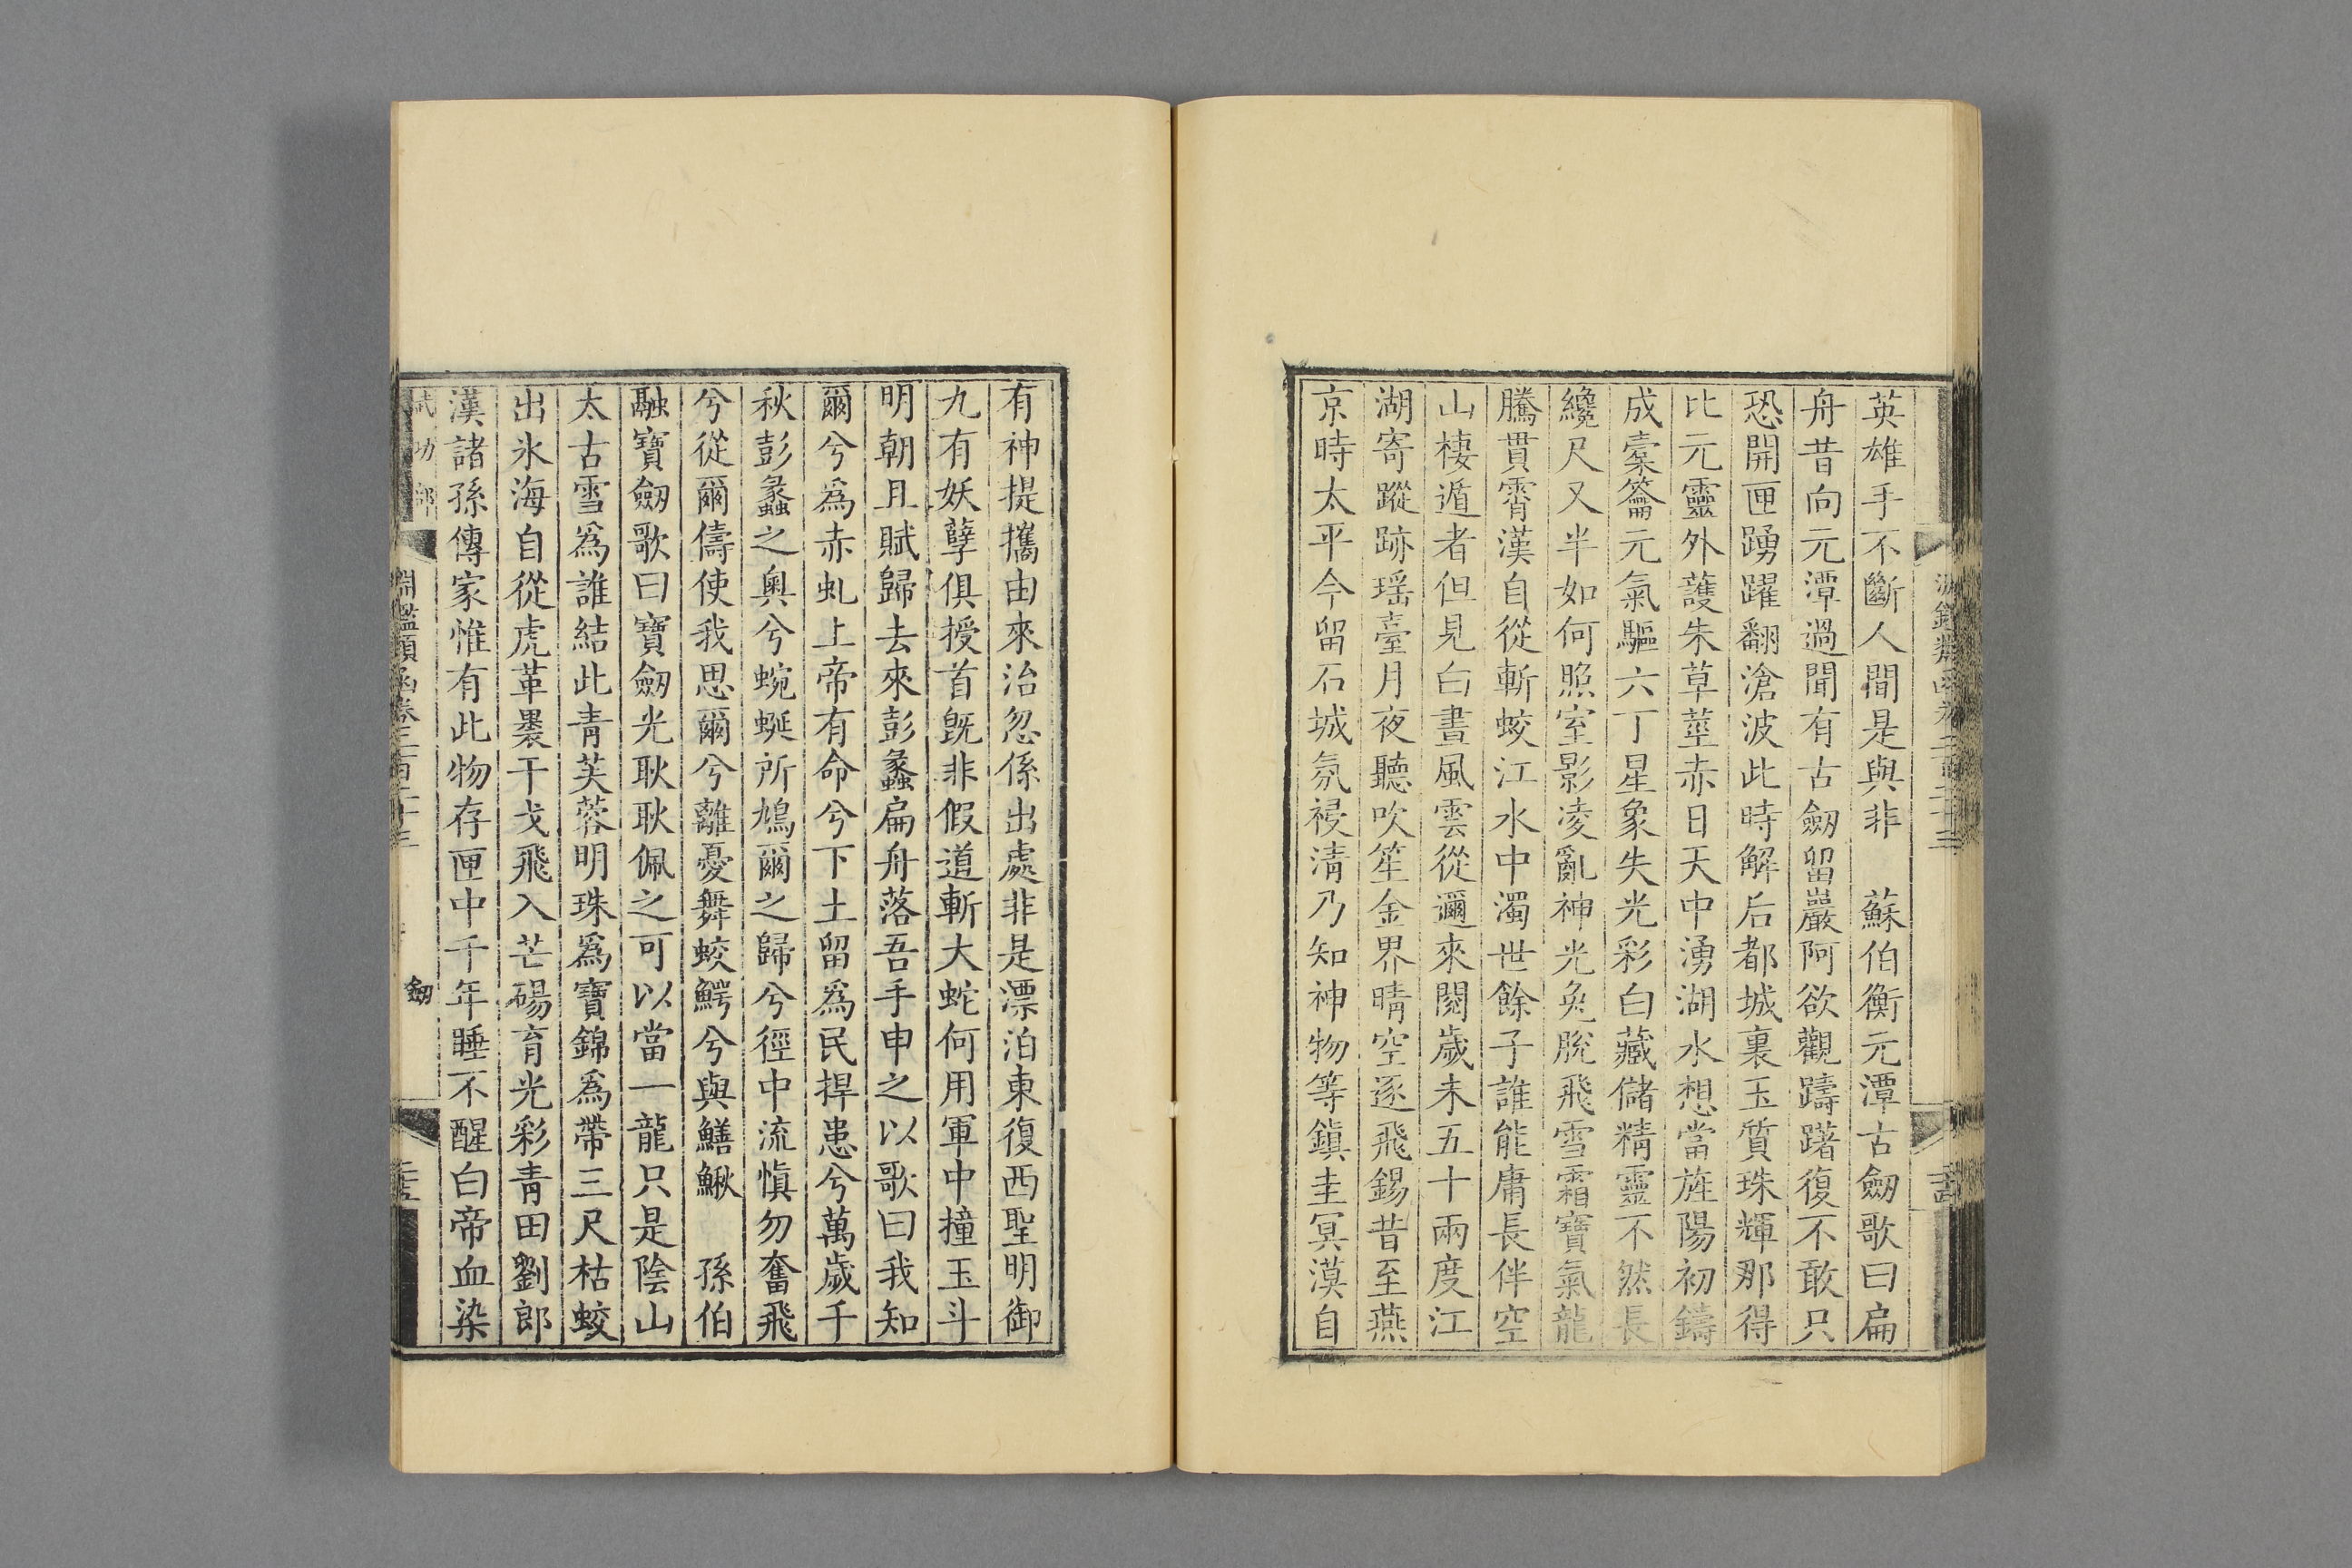 英雄手不斷人間是與非　蘇伯衡元潭古劒歌曰扁
舟昔向元潭過聞有古劒留巖阿欲觀躊躇復不敢只
恐開匣踴躍翻滄波此時解后都城裏玉質珠輝那得
比元靈外護朱草莖赤日天中湧湖水想當旌陽初鑄
成橐籥元氣驅六丁星象失光彩白藏儲精靈不然長
纔尺又半如何照室影凌亂神光兔脫飛雪霜寶氣龍
騰貫霄漢自從斬蛟江水中濁世餘子誰能庸長伴空
山棲遁者但見白晝風雲從邇來閱歲未五十兩度江
湖寄蹤跡瑶臺月夜聽吹笙金界晴空逐飛錫昔至燕
京時太平今留石城氛祲淸乃知神物等鎭圭冥漠自
有神提攜由來治忽係出處非是漂泊東復西聖明御
九有妖孽俱授首旣非假道斬大蛇何用軍中撞玉斗
明朝且賦歸去來彭蠡扁舟落吾手申之以歌曰我知
爾兮爲赤虬上帝有命兮下土留爲民捍患兮萬歲千
秋彭蠡之奧兮蜿蜒所鳩爾之歸兮徑中流愼勿奮飛
兮從爾儔使我思爾兮離憂舞蛟鰐兮與鱔鰍　孫伯
融寶劒歌曰寶劒光耿耿佩之可以當一龍只是陰山
太古雪爲誰結此靑芙蓉明珠爲寶錦爲帶三尺枯蛟
出氷海自從虎革褁干戈飛入芒碭育光彩靑田劉郞
漢諸孫傳家惟有此物存匣中千年睡不醒白帝血染
武功部
淵鑑類函卷二百二十三
劒